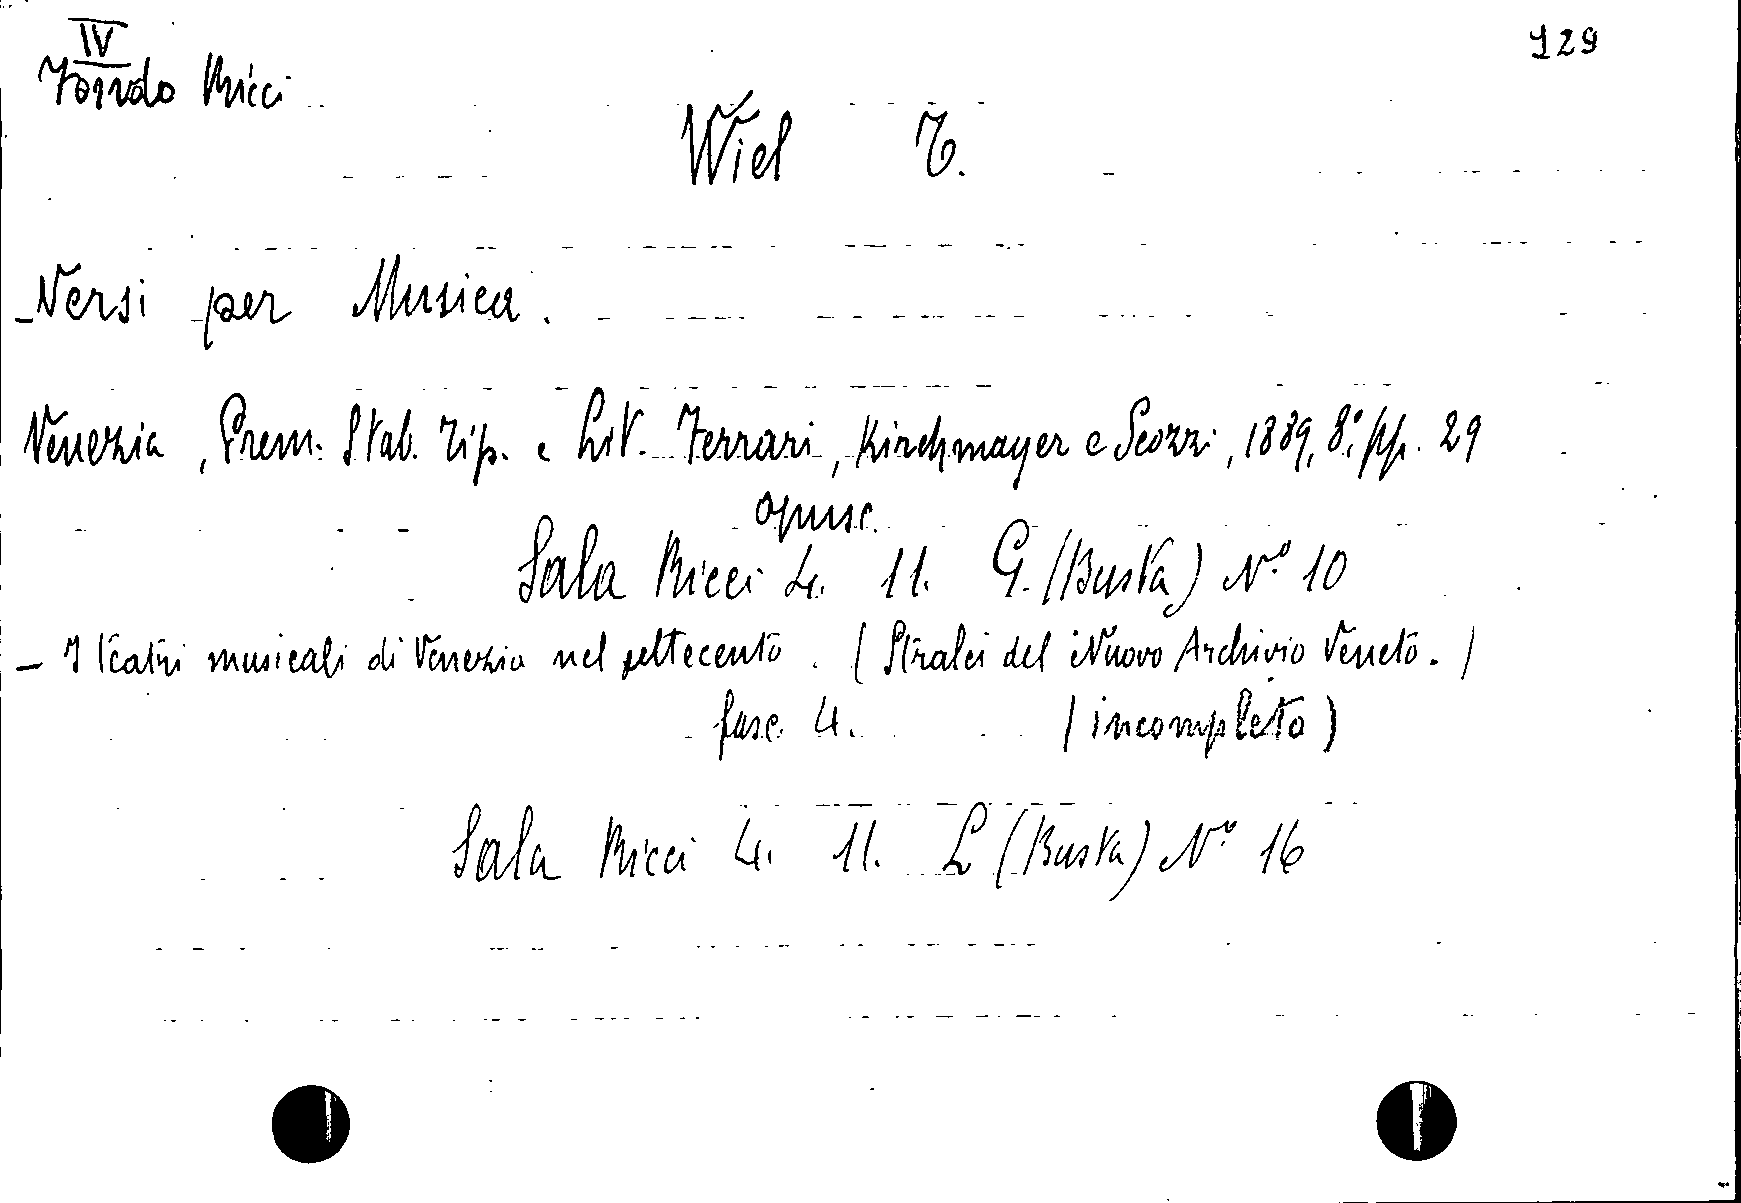 IV
Fondo Ricci
129
Wiel T.
- Versi per Musica.
Venezia, Prem. Stab. Tip. e Lit. Ferrari, Kirchmayer e Scozzi, 1889, 8.° pp. 29
opusc.
Sala Ricci 4. 11. G. (Busta) N.° 10
- I teatri musicali di Venezia nel settecento. (Stralci del Nuovo Archivio Veneto.)
fasc. 4. (incompleto)
Sala Ricci 4. 11. L (Busta) N.° 16